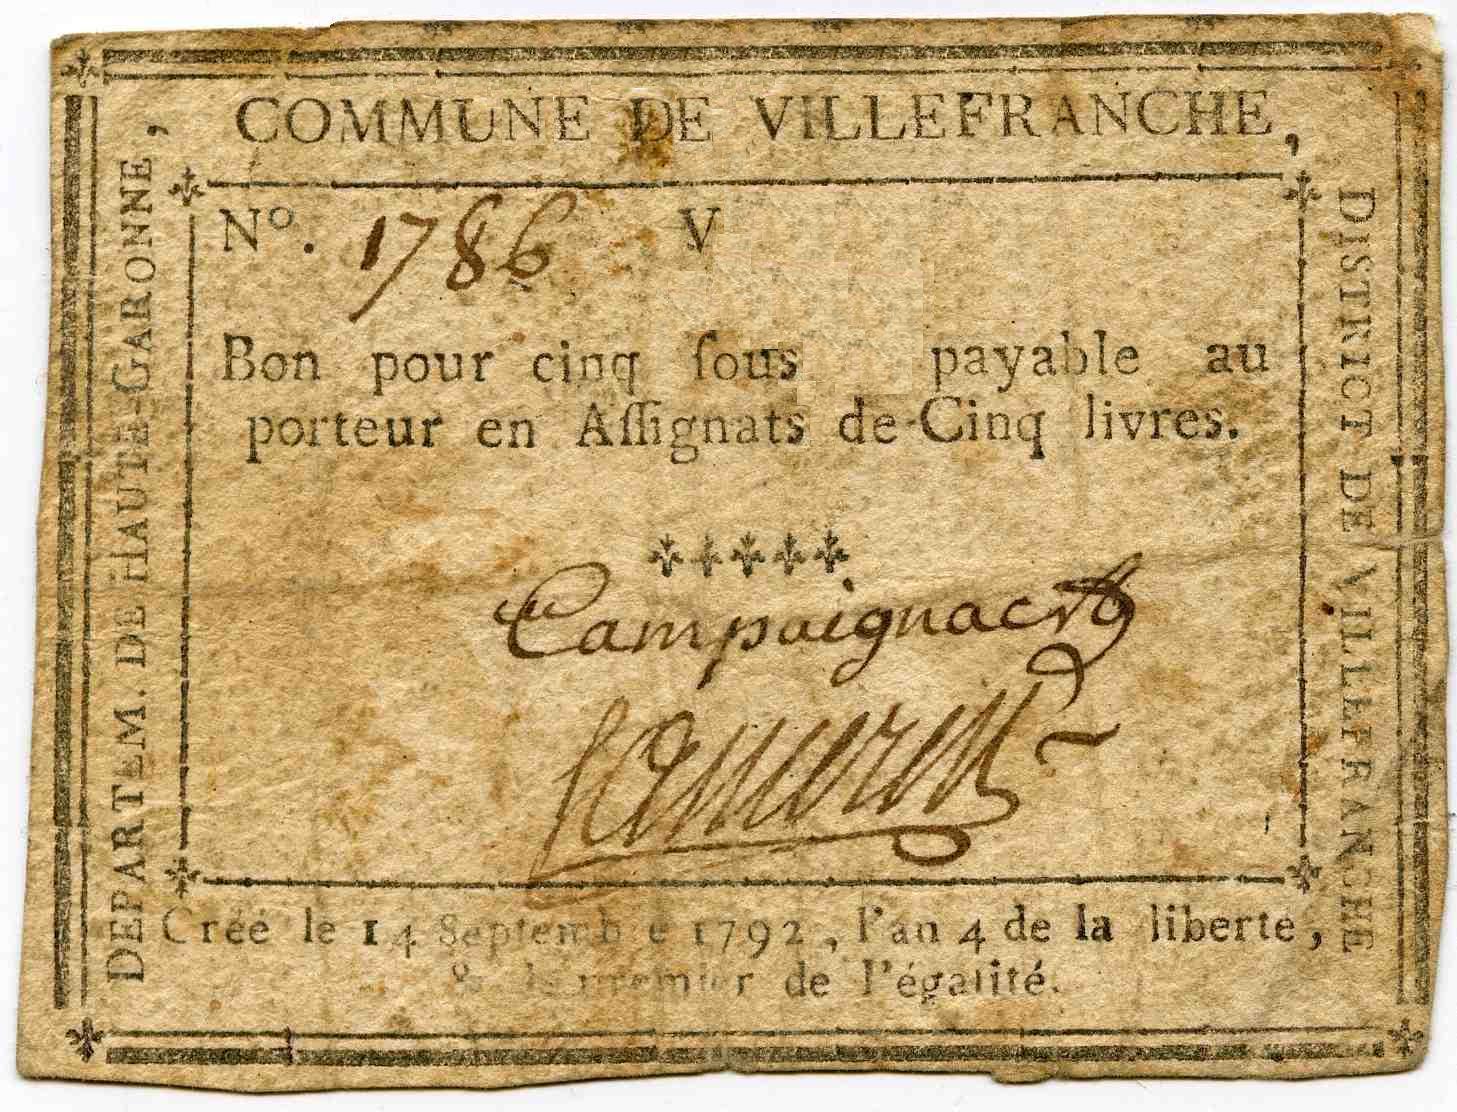 COMMUNE DE VILLEFRANCHE,
DEPARTEM. DE HAUTE-GARONNE,
DISTRICT DE VILLEFRANCHE
Nº. 1786 V
Bon pour cinq ſous payable au
porteur en Aſſignats de-Cinq livres.
Campaignac
Créé le 14 Septembre 1792, l'an 4 de la liberté,
& le premier de l'égalité.